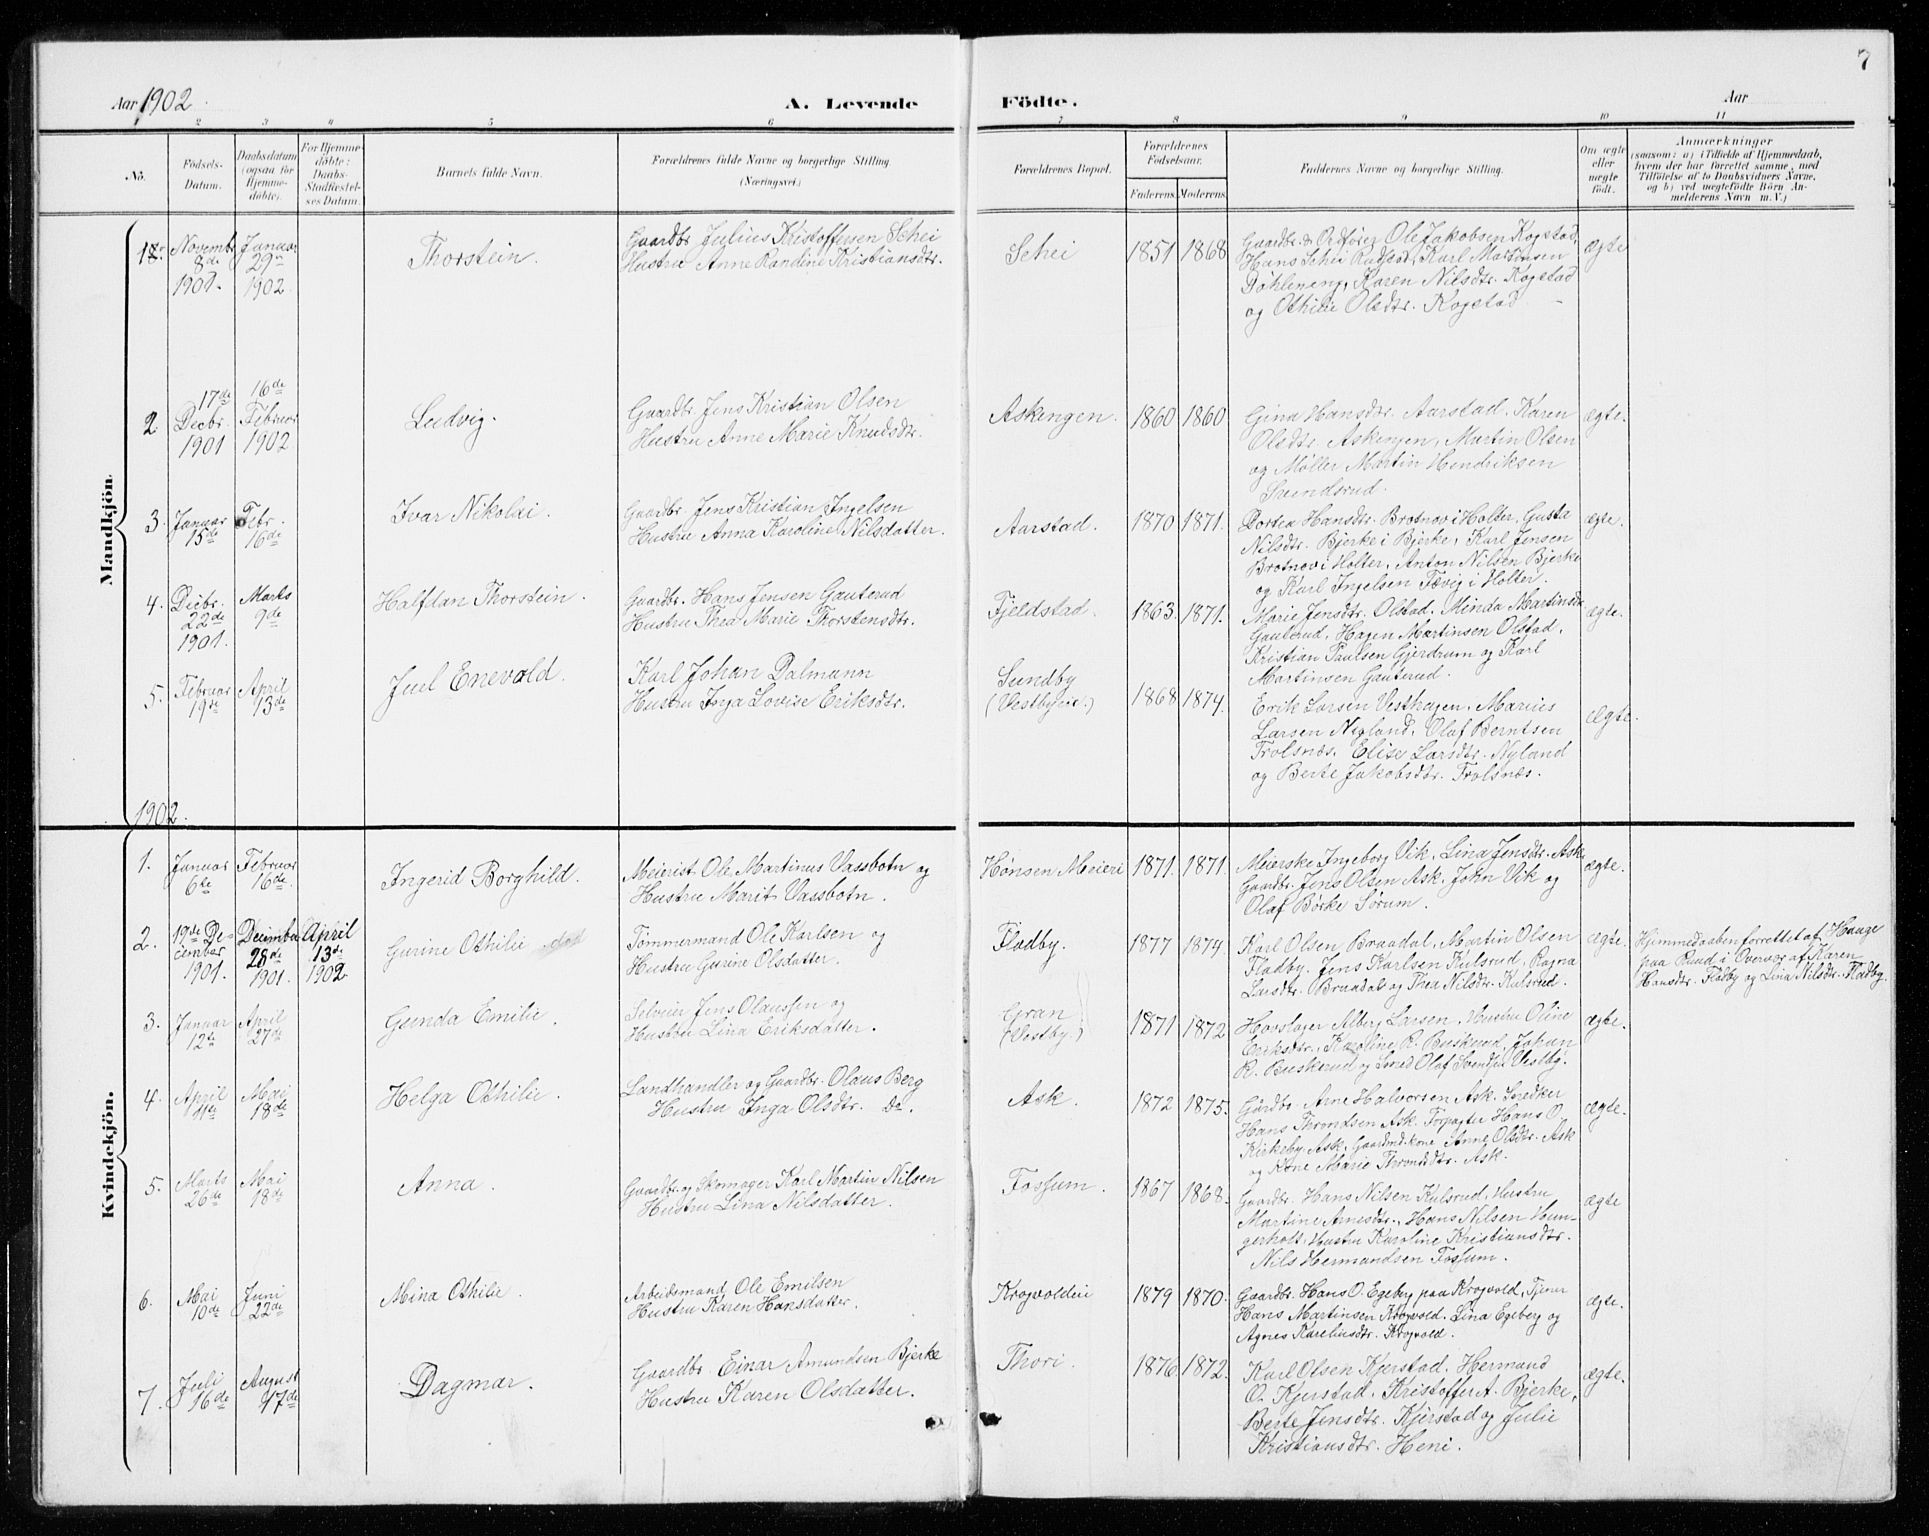 7
Aar 1902
A. Levende
Födte.
Aar
1 2 3 4 5 6 7 8 9 10 11
No.
Födsels-Datum.
Daabsdatum (ogsaa for Hjemmedöbte).
For Hjemmedöbte: Daabs-Stadfæstelses Datum.
Barnets fulde Navn.
Forældrenes fulde Navne og borgerlige Stilling. (Næringsvei.)
Forældrenes Bopæl.
Forældrenes Födselsaar.
Faderens. Moderens.
Faddernes Navne og borgerlige Stilling.
Om ægte eller uægte födt.
Anmærkninger
(saasom: a) i Tilfælde af Hjemmedaab, hvem der har forrettet samme, med Tilföielse af to Daabsvidners Navne, og b) ved uægtefödte Börn Anmelderens Navn m. V.)
Mandkjön.
1. Novembr 8de 1901. Januar 29de 1902.
Thorstein.
Gaardbr. Julius Kristoffersen Schei
Hustru Anne Randine Kristiansdtr.
Schei 1851 1868
Gaardbr. & Ordfører Ole Jakobsen Kogstad,
Hans Schei Rudsød, Karl Martinsen
Døhleneng, Karen Nilsdtr. Kogstad
og Othilie Olsdtr. Kogstad.
ægte
2 17de Decbr. 1901 16de Februar 1902
Ludvig.
Gaardbr. Jens Kristian Olsen
Hustru Anne Marie Knudsdtr.
Askengen. 1860 1860
Gina Hansdtr. Aarstad. Karen
Olsdtr. Askengen, Martin Olsen
og Møller Martin Hendriksen
Svendsrud.
ægte.
3. Januar 15de Febr. 16de
Ivar Nikolai.
Gaardbr. Jens Kristian Ingelsen
Hustru Anna Karoline Nilsdatter.
Aarstad. 1870 1871.
Dortea Hansdtr. Brotnov i Holter, Gusta
Nilsdtr. Bjerke i Bjerke, Karl Jensen
Brotnov i Holter, Anton Nilsen Bjerke
og Karl Ingelsen Fævig i Holter.
ægte.
4. Decbr. 22de 1901. Marts 9de
Halfdan Thorstein.
Gaardbr. Hans Jensen Gauterud
Hustru Thea Marie Thorstensdtr.
Fjeldstad. 1863 1871.
Marie Jensdtr. Olstad. Minda Martinsdtr
Gauterud, Hagen Martinsen Olstad,
Kristian Paulsen Gjerdrum og Karl
Martinsen Gauterud.
ægte.
5. Februar 19de April 13de
Juel Enevald.
Karl Johan Dalmann
Hustru Inga Lovise Eriksdtr.
Sundby
(Vestbyeie.) 1868 1874.
Erik Larsen Vesthagen, Marius
Larsen Nyland, Olaf Berntsen
Trolsnæs, Elise Larsdtr. Nyland
og Berte Jakobsdtr. Trolsnæs.
ægte.
1902.
Kvindekjön.
1. Januar 6te Februar 16de
Ingerid Borghild.
Meierist Ole Martinus Vassbotn og
Hustru Marit Vassbotn.
Hønsen Meieri 1871. 1871.
Meierske Ingeborg Vik, Lina Jensdtr. Ask
Gaardbr. Jens Olsen Ask. John Vik og
Olaf Børke Sørum.
ægte.
2. 19de December 1901. December 28de 1901. April 13de 1902
Gurine Othilie død
Tømmermand Ole Karlsen og
Hustru Gurine Olsdatter.
Fladby. 1877 1874.
Karl Olsen Braadal, Martin Olsen
Fladby. Jens Karlsen Kulsrud, Ragna
Larsdtr. Braadal og Thea Nilsdtr. Kulsrud.
ægte.
Hjemmedaaben forrettet af Hauge
paa Ruud i Overvær af Karen
Hansdtr. Fladby og Lina Nilsdtr. Fladby.
3. Januar 12te April 27de
Gunda Emilie.
Selveier Jens Olaussen og
Hustru Lina Eriksdatter.
Gran
(Vestby.) 1871 1872
Hovslager Alberg Larsen, Hustru Oline
Eriksdtr., Karoline R. Buskerud, Johan
R. Buskerud og Smed Olaf Svendsen Vestby.
ægte.
4. April 11te Mai 18de
Helga Othilie.
Landhandler og Gaardbr. Olaus Berg
Hustru Inga Olsdtr. Do.
Ask. 1872 1875.
Gårdbr. Arne Halvorsen Ask. Snedker
Hans Throndsen Ask. Forpagter Hans O.
Kirkeby. Ask, Gaardmd.kone Anne Olsdtr. Ask
og Kone Marie Throndsdtr. Ask.
ægte.
5. Marts 26de Mai 18de
Anna.
Gaardbr. og Skomager Karl Martin Nilsen
Hustru Lina Nilsdatter.
Fossum. 1867 1868.
Gaardbr. Hans Nilsen Kulsrud, Hustru
Martine Arnesdtr., Hans Nilsen Hun-
gerholt, Hustru Karoline Kristiansdtr.
Nils Hermandsen Fossum.
ægte
6. Mai 10de Juni 22de
Mina Othilie.
Arbeidsmand Ole Emilsen
Hustru Karen Hansdatter.
Krogvoldeie 1879 1870.
Gaardbr. Hans O. Egeberg paa Krogvold, Tjener
Hans Martinsen Krogvold. Lina Egeberg og
Agnes Kareliusdtr. Krogvold.
ægte.
7. Juli 16de August 17de
Dagmar.
Gaardbr. Einar Amundsen Bjerke
Hustru Karen Olsdatter.
Thori. 1876. 1872.
Karl Olsen Kjerstad. Hermand
O. Kjerstad, Kristoffer A. Bjerke,
Berte Jensdtr. Kjerstad og Julie
Kristiansdtr. Heni.
ægte.